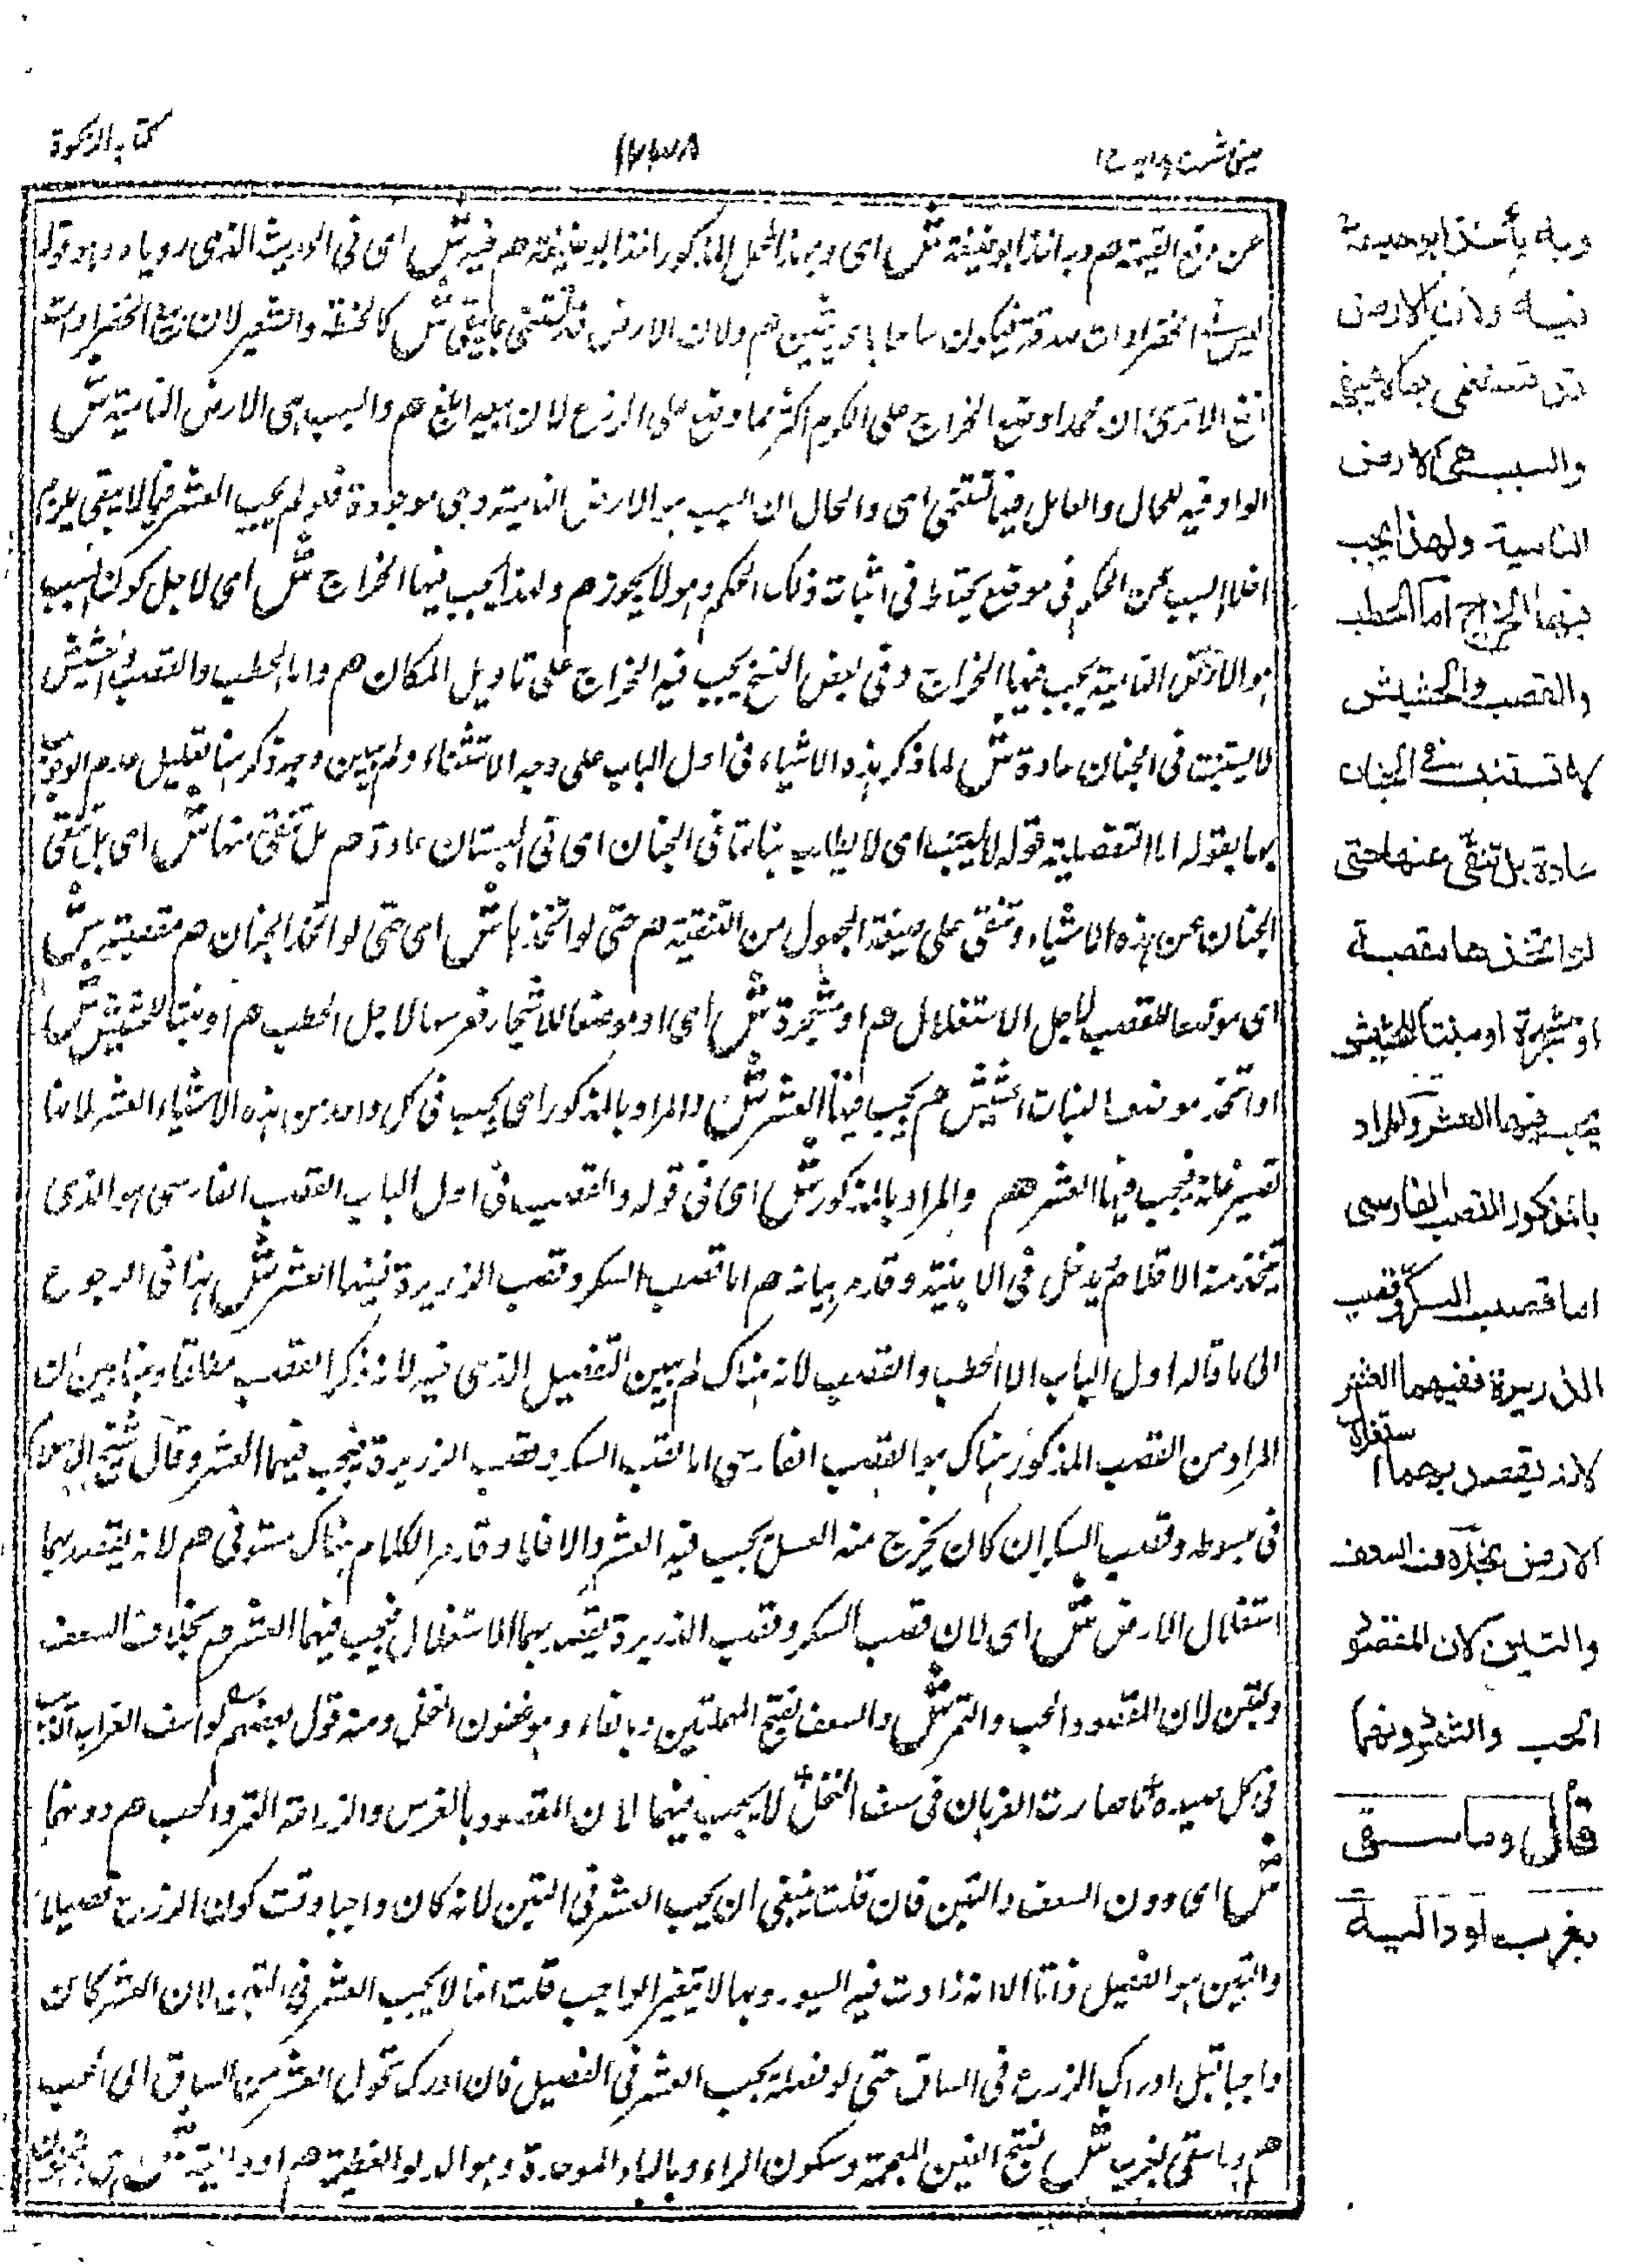 كتاب الزكوة
عن دفع القيمة هم وبه اخذ ابو حنيفة ش اى وبهذا المحمل المذكور اخذ ابو حنيفة هم فيه ش اى فى الحديث الذى روياه وهو قوله
ليس فى الخضراوات صدقة فيكون هم ولان الارض قد تستنمى بما لا يبقى ش كالحنطة والشعير لان ريع الخضراوات
انفع الا ترى ان محمدا وضع الخراج على الكروم اكثر مما وضع على الزرع لان ريعه ابلغ هم والسبب هى الارض النامية ش
الواو فيه للحال والعامل فيها تستنمى اى والحال ان السبب هو الارض النامية وهى موجودة فلو لم يجب العشر فيما لا يبقى يلزم
اخلاء السبب عن الحكم فى موضع يحتاط فى اثبات ذلك الحكم وهو لا يجوز هم ولهذا يجب فيها الخراج ش اى لاجل كون السبب
هو الارض النامية يجب فيها الخراج وفى بعض النسخ يجب فيه الخراج على تاويل المكان هم واما الحطب والقصب والحشيش
لا يستنبت فى الجنان عادة ش لما ذكر هذه الاشياء فى اول الباب على وجه الاستثناء ولم يبين وجهه ذكر هنا تعليل عدم الوجوب
بها بقوله اما التفصيلية قوله لا يستنبت اى لا يطلب نباتها فى الجنان اى فى البستان عادة هم بل تنقى عنها ش اى بل تنقى
الجنان عن هذه الاشياء وتنقى على صيغة المجهول من التنقية هم حتى لو اتخذها ش اى حتى لو اتخذ الجنان هم مقصبة ش
اى موضعا للقصب لاجل الاستغلال هم او مشجرة ش اى او موضعا للاشجار فغرسها لاجل الحطب هم او منبتا للحشيش ش
او اتخذ موضعا لنبات الحشيش هم يجب فيها العشر ش والمراد بالمذكور اى يجب فى كل واحد من هذه الاشياء العشر لانها
تصير غلة فيجب فيها العشر هم والمراد بالمذكور ش اى فى قوله والقصب فى اول الباب القصب الفارسى هو الذى
يتخذ منه الاقلام يدخل فى الابنية وقد مر بيانه هم اما قصب السكر وقصب الذريرة ففيهما العشر ش هذا فى الرجوع
الى ما قاله اول الباب الا الحطب والقصب لانه هناك لم يبين التفصيل الذى فيه لانه ذكر القصب مطلقا وهنا بين ان
المراد من القصب المذكور هناك هو القصب الفارسى اما قصب السكر وقصب الذريرة فيجب فيهما العشر وقال شيخ الاسلام
فى مبسوطه وقصب السكر ان كان يخرج منه العسل يجب فيه العشر والا فلا وقد مر الكلام هناك مستوفى هم لانه يقصد بهما
استغلال الارض ش اى لان قصب السكر وقصب الذريرة يقصد بهما الاستغلال فيجب فيهما العشر هم بخلاف السعف
والتبن لان المقصود الحب والتمر ش والسعف بفتح المهملتين وبالفاء وهو غصون النخل ومنه قول بعضهم
فى كل النخل لا يجب فيهما لان المقصود بالغرس والزراعة التمر والحب هم دونهما
ش اى دون السعف والتبن فان قلت ينبغى ان يجب العشر فى التبن لانه كان واجبا وقت كون الزرع قصيلا
والتبن هو القصيل ذاتا الا انه زادت فيه اليبوسة وبها لا يتغير الواجب قلت انما لا يجب العشر فى التبن لان العشر كان
واجبا قبل ادراك الزرع فى الساق حتى لو فصله يجب العشر فى القصيل فان ادرك تحول العشر من الساق الى الحب
هم وما سقى بغرب ش بفتح الغين المعجمة وسكون الراء وبالباء الموحدة وهو الدلو العظيم هم او دالية ش
وبه يأخذ ابو حنيفة
فيه ولان الارض
قد تستنمى بما لا يبقى
والسبب هى الارض
النامية ولهذا يجب
فيها الخراج اما الحطب
والقصب والحشيش
لا تستنبت فى الجنان
عادة بل تنقى عنها حتى
لو اتخذها مقصبة
او مشجرة او منبتا للحشيش
يجب فيها العشر والمراد
بالمذكور القصب الفارسى
اما قصب السكر وقصب
الذريرة ففيهما العشر
لانه يقصد بهما استغلال
الارض بخلاف السعف
والتبن لان المقصود
الحب والتمر دونهما
قال وما سقى
بغرب او دالية